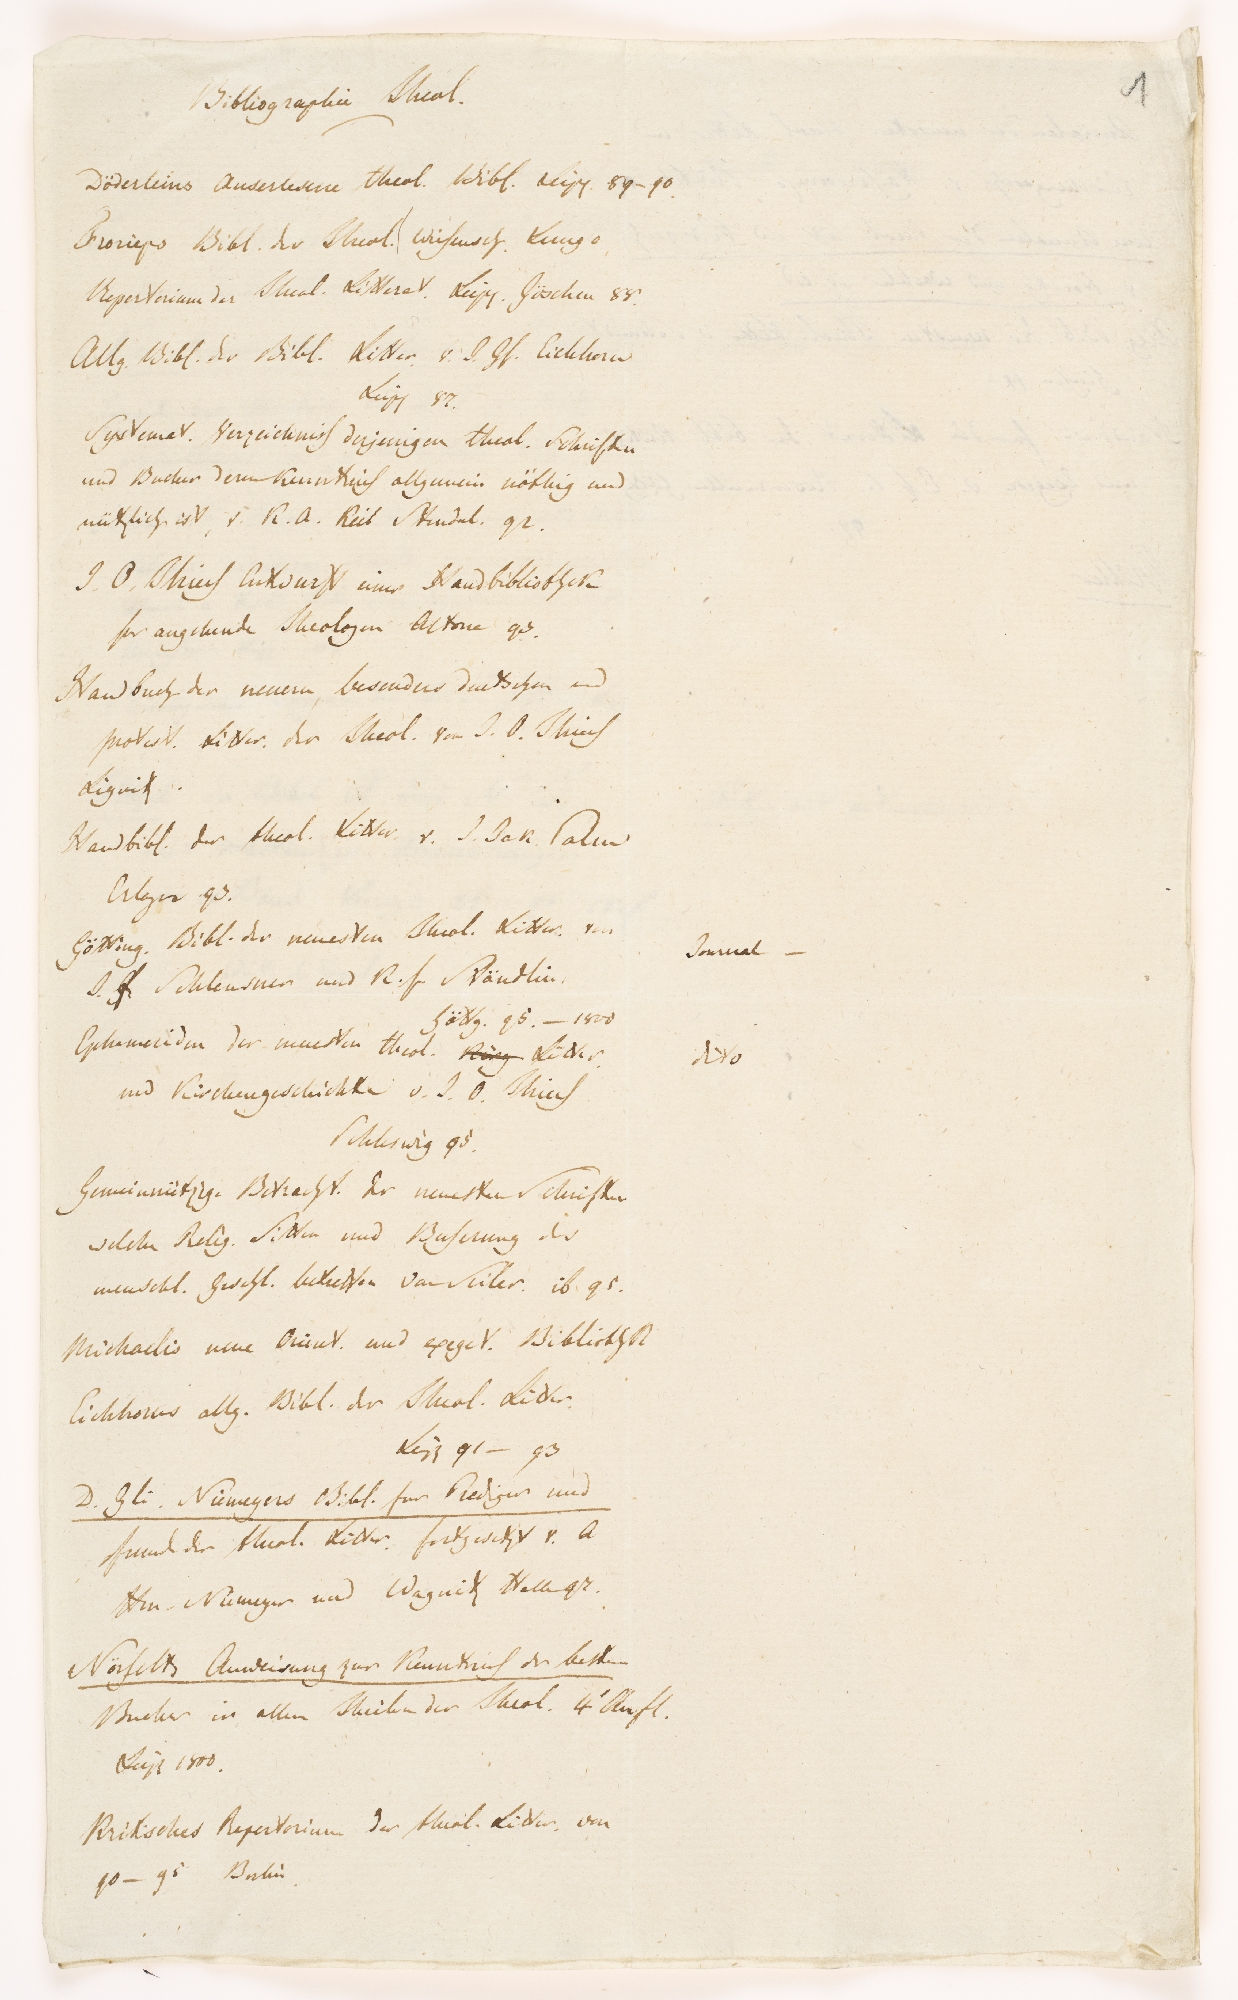 1
Bibliographie Theol.
Döderleins Auserlesene theol. Bibl. Leipz. 89–90.
Frorieps Bibl. der Theol. Wissensch. Lemgo,
Repertorium der Theol. Litterat. Leipz. Göschen 88.
Allg. Bibl. der Bibl. Litter. v. J. Gf. Eichhorn
Leipz 87.
Systemat. Verzeichniss derjenigen theol. Schriften
und Bucher deren Kenntniss allgemein nöthig und
nützlich ist, v. K. A. Reil Stendal. 92.
J. O. Thiess Entwurft einer Handbibliothek
fur angehende Theologen Altona 93.
Handbuch der neuern, besonders deutschen und
protest. Litter. der Theol. von J. O. Thiess
Lignitz.
Handbibl. der theol. Litter. v. J. Jak. Palm
Erlagen 93.
Götting. Bibl. der neuesten Theol. Litter. von
Journal —
J. F. Schleusner und K. f. Stäudlin.
Götting. 95. — 1800
Ephemeriden der neuesten theol. Litter.
dito
und Kirchengeschichte v. J. O. Thiess
Schleswig 95.
Gemeinnützige Betracht. der neuesten Schriften
welche Relig. Sitten und Besserung des
menschl. Geschl. betreffen von Seiler. ib 95.
Michaelis neue Orient. und exeget. Bibliothek
Eichhorns allg. Bibl. der Theol. Litter.
Leipz 91 — 93
D. Gli. Niemeyers Bibl. fur Prediger und
freunde der theol. Litter. fortgesetzt v. A
Hm. Niemeyer und Wagnitz Halle 97.
Nösselts Anweisung zur Kenntniss der besten
Bucher in allen Theilen der Theol. 4 Aufl.
Leipz 1800.
Kritisches Repertorium der theol. Litter. von
90 — 95 Berlin.